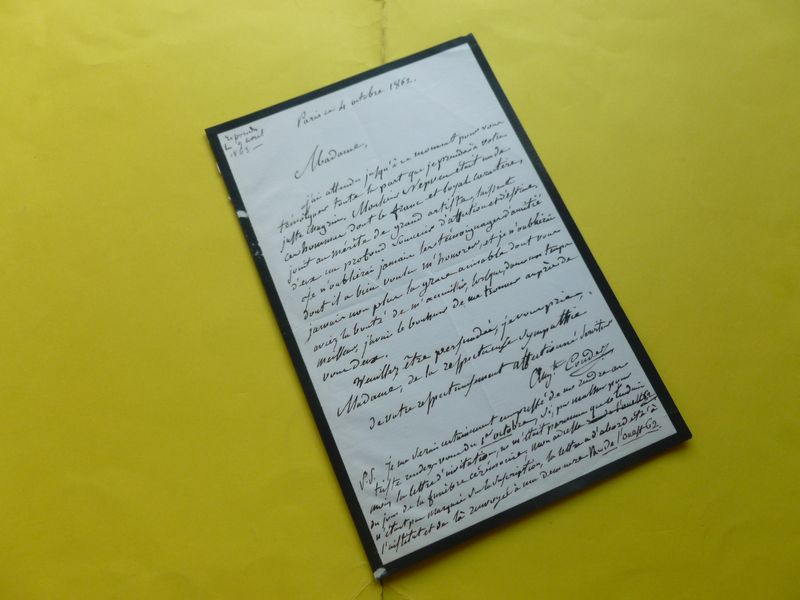 répondu
le 9 avril
1863 —
Paris ce 4 octobre 1862.
Madame,
J'ai attendu jusqu'à ce moment pour vous
témoigner toute la part que je prends à votre
juste chagrin. Monsieur Nepveu était un de
ces hommes dont le franc et loyal caractère,
joint au mérite de grand artiste, laissent
d'eux un profond souvenir d'affection et d'estime.
Je n'oublierai jamais les témoignages d'amitié
dont il a bien voulu m'honorer, et je n'oublierai
jamais non plus la grâce aimable dont vous
aviez la bonté de m'accueillir, lorsque, dans un temps
meilleur, j'avais le bonheur de me trouver auprès de
vous deux.
Veuillez être persuadée, je vous prie,
Madame, de la respectueuse sympathie
de votre respectueusement affectionné serviteur
Aug.te Couder
P.S. Je me serais certainement empressé de me rendre au
triste rendez-vous du 1er octobre, si, par malheur pour
moi, la lettre d'invitation, ne m'était parvenue que le lendemain
du jour de la funèbre cérémonie, mon adresse
n'étant pas marquée sur la suscription, la lettre a d'abord été à
l'institut et de là renvoyée à ma demeure Rue de l'ouest 62.